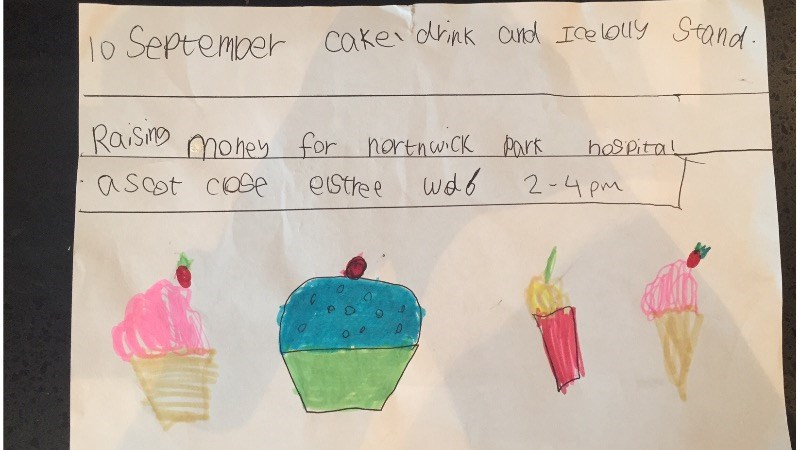 10 September cake, drink and Icelolly Stand.
Raising money for nortnwick park hospital
ascot close elstree wd6 2-4pm